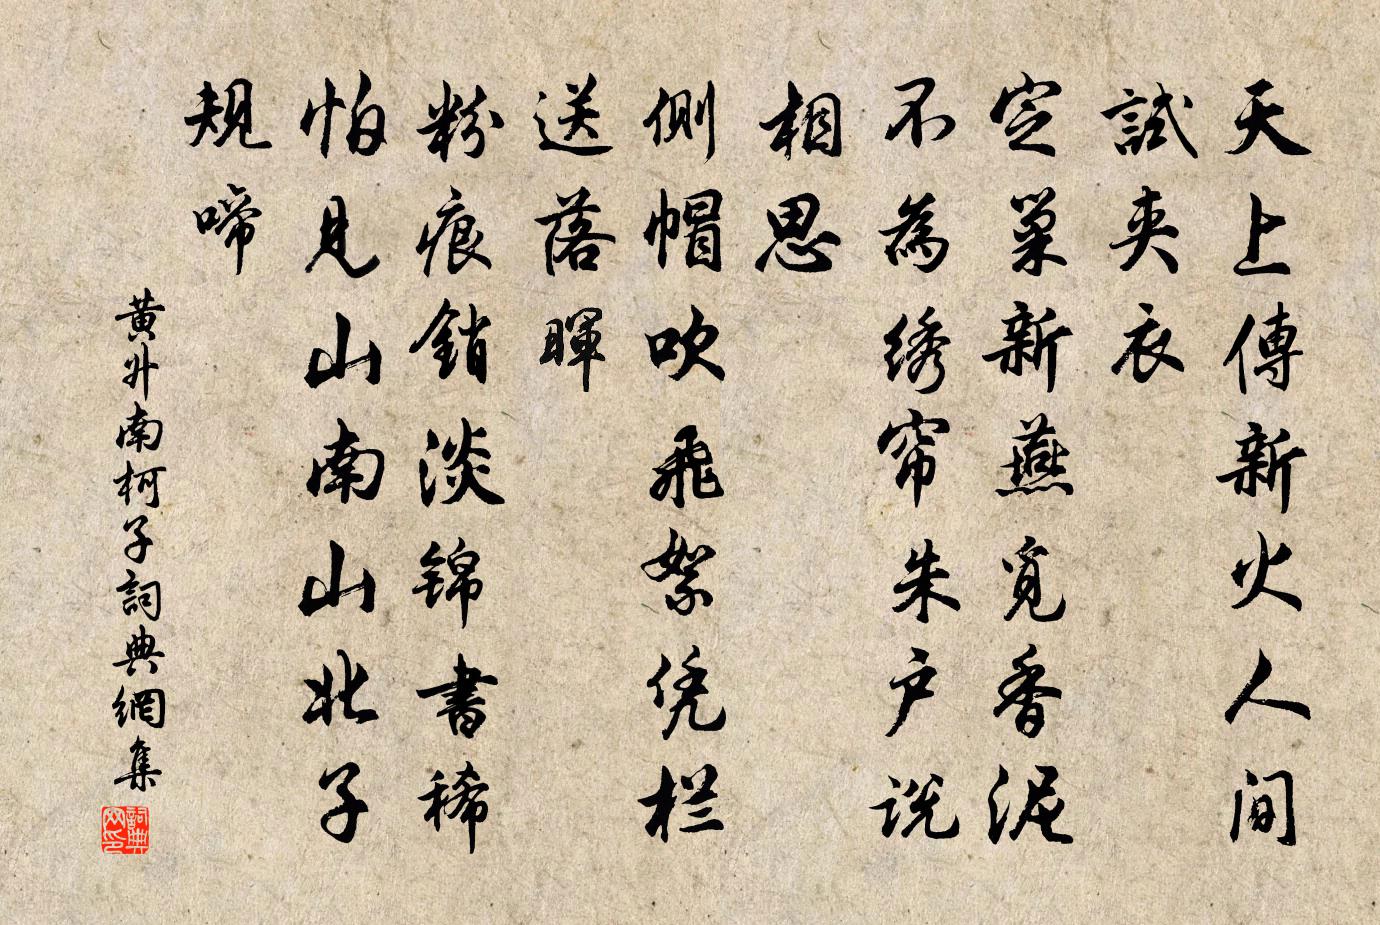 天上傳新火人间
試夹衣
定巢新燕觅香泥
不為绣帘朱户说
相思
側帽吹飛絮凭栏
送落暉
粉痕銷淡锦書稀
怕见山南山北子
规啼
黄升南柯子詞典網集
詞典網印